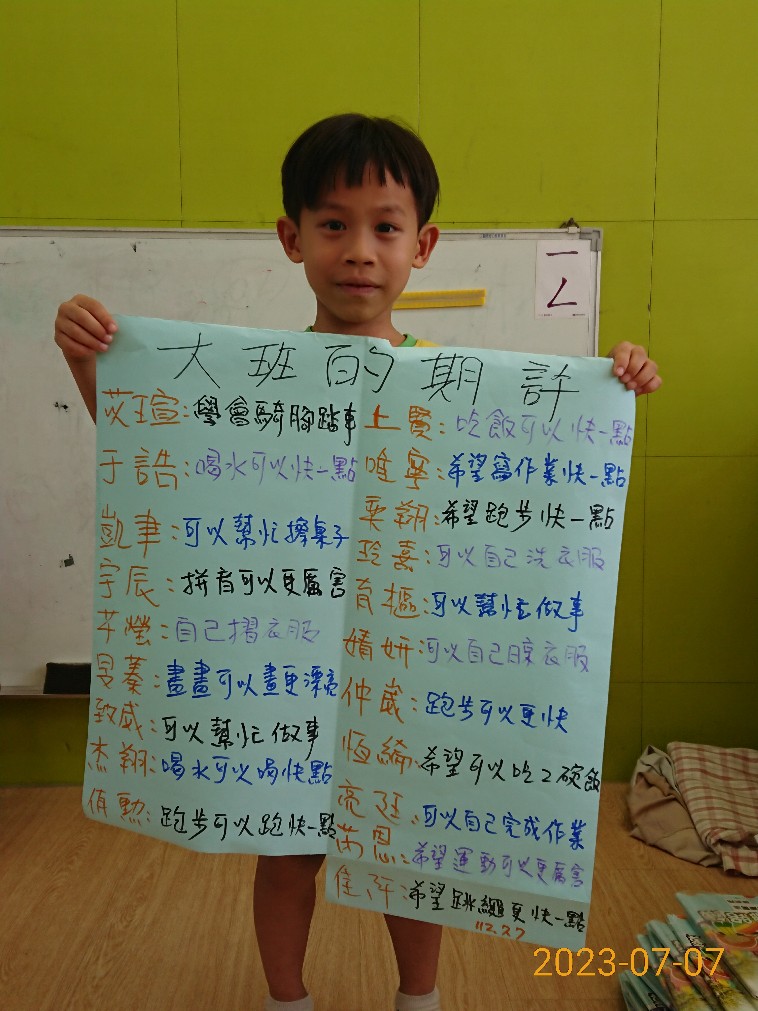 一ㄥ
大班的期許
苡瑄:學會騎腳踏車
于誥:喝水可以快一點
凱聿:可以幫忙擦桌子
宇辰:拼音可以更厲害
芊瑩:自己摺衣服
旻蓁:畫畫可以畫更漂亮
致威:可以幫忙做事
杰翔:喝水可以喝快點
侑勳:跑步可以跑快一點
上賢:吃飯可以快一點
唯寧:希望寫作業快一點
奕翔:希望跑步快一點
玲熹:可以自己洗衣服
育樞:可以幫忙做事
婧妍:可以自己晾衣服
仲崴:跑步可以更快
恆綺:希望可以吃2碗飯
亮廷:可以自己完成作業
芮恩:希望運動可以更厲害
佳玶:希望跳繩更快一點
112.7.7
2023-07-07